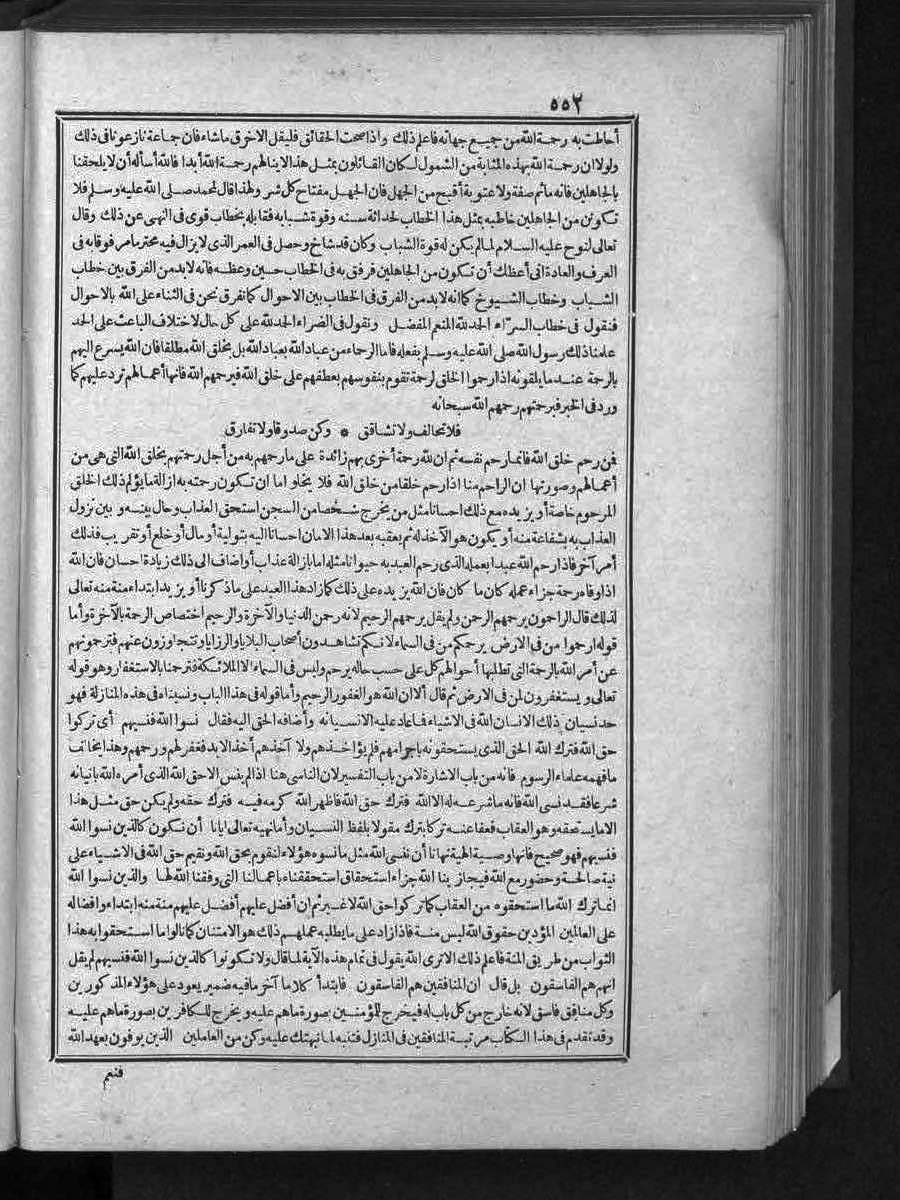 ٥٥٢
أحاطت به رحمة الله من جميع جهاته فاعلم ذلك واذا صحت الحقائق فليقل الاخرق ما شاء فان جماعة نازعونا فى ذلك
ولولا ان رحمة الله بهذه المثابة من الشمول لكان القائلون بمثل هذا لا ينالهم رحمة الله أبدا فالله أسأله أن لا يلحقنا
بالجاهلين فانه ما ثم صفة ولا عقوبة أقبح من الجهل فان الجهل مفتاح كل شر ولهذا قال لمحمد صلى الله عليه وسلم فلا
تكونن من الجاهلين خاطبه بمثل هذا الخطاب لحداثة سنه وقوة شبابه فقابله بخطاب قوى فى النهى عن ذلك وقال
تعالى لنوح عليه السلام لما لم يكن له قوة الشباب وكان قد شاخ وحصل فى العمر الذى لا يزال فيه محترما مرفوقا به فى
العرف والعادة انى أعظك أن تكون من الجاهلين فرفق به فى الخطاب حين وعظه فانه لابد من الفرق بين خطاب
الشباب وخطاب الشيوخ كما انه لابد من الفرق فى الخطاب بين الاحوال كما نفرق نحن فى الثناء على الله بالاحوال
فنقول فى خطاب السرّاء الحمد لله المنعم المفضل ونقول فى الضراء الحمد لله على كل حال لاختلاف الباعث على الحمد
علمنا ذلك رسول الله صلى الله عليه وسلم بفعله فاما الرحماء من عباد الله بعباد الله بل بخلق الله مطلقا فان الله يسرع اليهم
بالرحمة عند ما يلقونه اذا رحموا الخلق لرحمة تقوم بنفوسهم بعطفهم على خلق الله فيرحمهم الله فانها أعمالهم ترد عليهم كما
ورد فى الخبر فبرحمتهم رحمهم الله سبحانه
فلا تخالف ولا تشاقق * وكن صدوقا ولا تفارق
فمن رحم خلق الله فانما رحم نفسه ثم ان لله رحمة أخرى بهم زائدة على ما رحمهم به من أجل رحمتهم بخلق الله التى هى من
أعمالهم وصورتها ان الراحم منا اذا رحم خلقا من خلق الله فلا يخلو اما ان تكون رحمته به ازالة ما يؤلم ذلك الخلق
المرحوم خاصة أو يزيده مع ذلك احسانا مثل من يخرج شخصا من السجن استحق العذاب وحال بينه وبين نزول
العذاب به بشفاعة منه أو يكون هو الآخذ له ثم يعقبه بعد هذا الامان احسانا اليه بتولية أو مال أو خلع أو تقريب فذلك
أمر آخر فاذا رحم الله عبدا بعمله الذى رحم العبد به حيوانا مثله اما بازالة عذاب أو اضاف الى ذلك زيادة احسان فان الله
اذا وفاه رحمة جزاء عمله كان ما كان فان الله يزيده على ذلك كما زاد هذا العبد على ما ذكرنا أو يزيد ابتداء منة منه تعالى
لذلك قال الراحمون يرحمهم الرحمن ولم يقل يرحمهم الرحيم لانه رحمن الدنيا والآخرة والرحيم اختصاص الرحمة بالآخرة وأما
قوله ارحموا من فى الارض يرحمكم من فى السماء لانكم تشاهدون أصحاب البلايا والرزايا وتتجاوزون عنهم فترحمونهم
عن أمر الله بالرحمة التى تطلبها أحوالهم كل على حسب حاله يرحم وليس فى السماء الا الملائكة فترحمنا بالاستغفار وهو قوله
تعالى ويستغفرون لمن فى الارض ثم قال ألا ان الله هو الغفور الرحيم وأما قوله فى هذا الباب ونسيناه فى هذه المنازلة فهو
حد نسيان ذلك الانسان الله فى الاشياء فعاد عليه الانسيانه وأضافه الحق اليه فقال نسوا الله فنسيهم أى تركوا
حق الله فترك الله الحق الذى يستحقونه باجرامهم فلم يؤاخذهم ولا آخذهم أخذ الابد فغفر لهم ورحمهم وهذا يخالف
ما فهمه علماء الرسوم فانه من باب الاشارة لا من باب التفسير لان الناسى هنا اذا لم ينس الا حق الله الذى أمره الله باتيانه
شرعا فقد نسى الله فانه ما شرعه له الا الله فترك حق الله فاظهر الله كرمه فيه فترك حقه ولم يكن حق مثل هذا
الا ما يستحقه وهو العقاب فعفا عنه تركا بترك مقولا بلفظ النسيان وأما نهيه تعالى ايانا أن نكون كالذين نسوا الله
فنسيهم فهو صحيح فانها وصية الهية نهانا أن ننسى الله مثل ما نسوه هؤلاء لنقوم بحق الله ونقيم حق الله فى الاشياء على
نية صالحة وحضور مع الله فيجازينا الله جزاء استحقاق استحققناه باعمالنا التى وفقنا الله لها والذين نسوا الله
انما ترك الله ما استحقوه من العقاب كما تركوا حق الله لا غير ثم ان أفضل عليهم أفضل عليهم منة منه ابتداء وافضاله
على العالمين المؤدين حقوق الله ليس منة فاذا زاد على ما يطلبه عملهم ذلك هو الامتنان كما نالوا ما استحقوا به هذا
الثواب من طريق المنة فاعلم ذلك الا ترى الله يقول فى تمام هذه الآية لما قال ولا تكونوا كالذين نسوا الله فنسيهم لم يقل
انهم هم الفاسقون بل قال ان المنافقين هم الفاسقون فابتدأ كلاما آخر ما فيه ضمير يعود على هؤلاء المذكورين
وكل منافق فاسق لانه خارج من كل باب له فيخرج للمؤمنين بصورة ما هم عليه ويخرج للكافرين بصورة ما هم عليه
وقد تقدم فى هذا الكتاب مرتبة المنافقين فى المنازل فتنبه لما نبهتك عليه وكن من العاملين الذين يوفون بعهد الله
فنعم